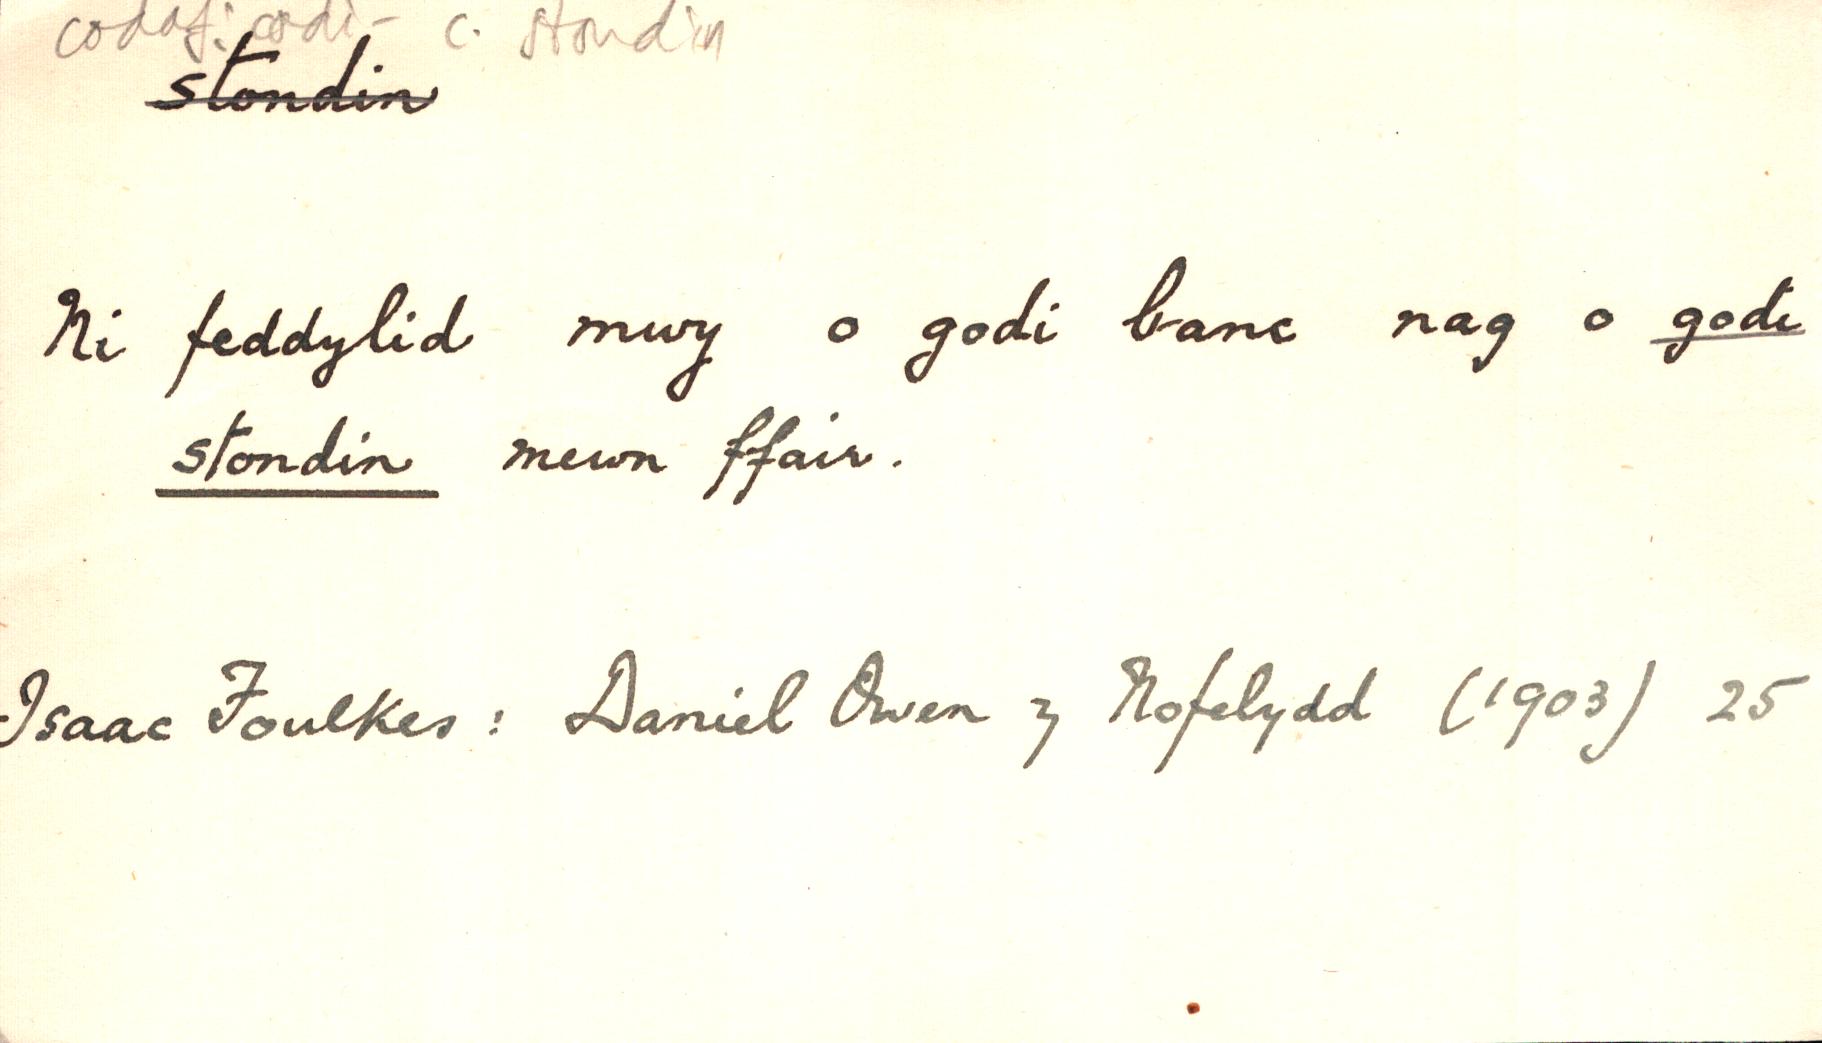 codaf: codi – c. stondin
stondin
Ni feddylid mwy o godi banc nag o godi
stondin mewn ffair.
Isaac Foulkes: Daniel Owen y Nofelydd (1903) 25